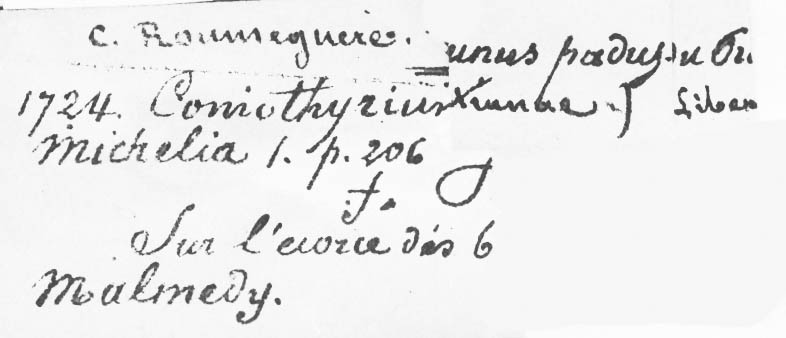 C. Roumeguère.
unus padus
1724. Coniothyrium
Michelia 1. p. 206
f.
Sur l'écorce dés 6
Malmedy.